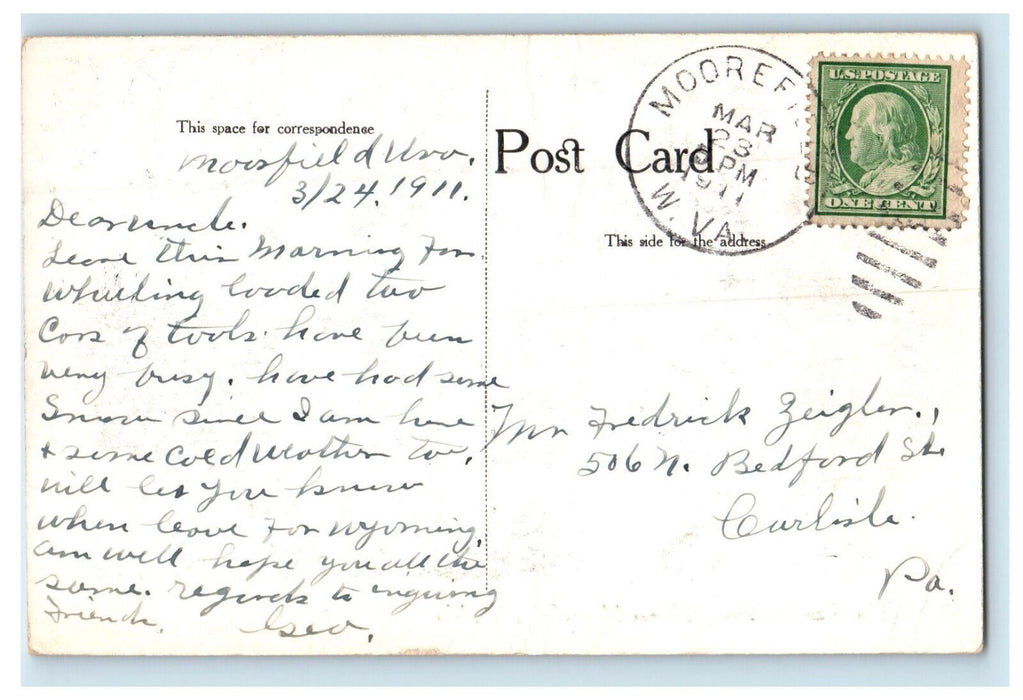 This space for correspondence
Moorfield Wva.
3/24.1911.
Dear uncle.
Leave this Morning For
Whieling loaded two
Cars of tools have been
very busy. have had some
Snow since I am here
& some Cold Weather too.
will let you know
when leave For Wyoming.
am well hope you all the
same. regards to inquiring
Friends. Geo.
Post Card
This side for the address
MOOREFI
MAR
23
PM
1911
W. VA.
U.S. POSTAGE
ONE CENT
Mr Fredrick Zeigler.,
506 N. Bedford St.
Carlisle.
Pa.